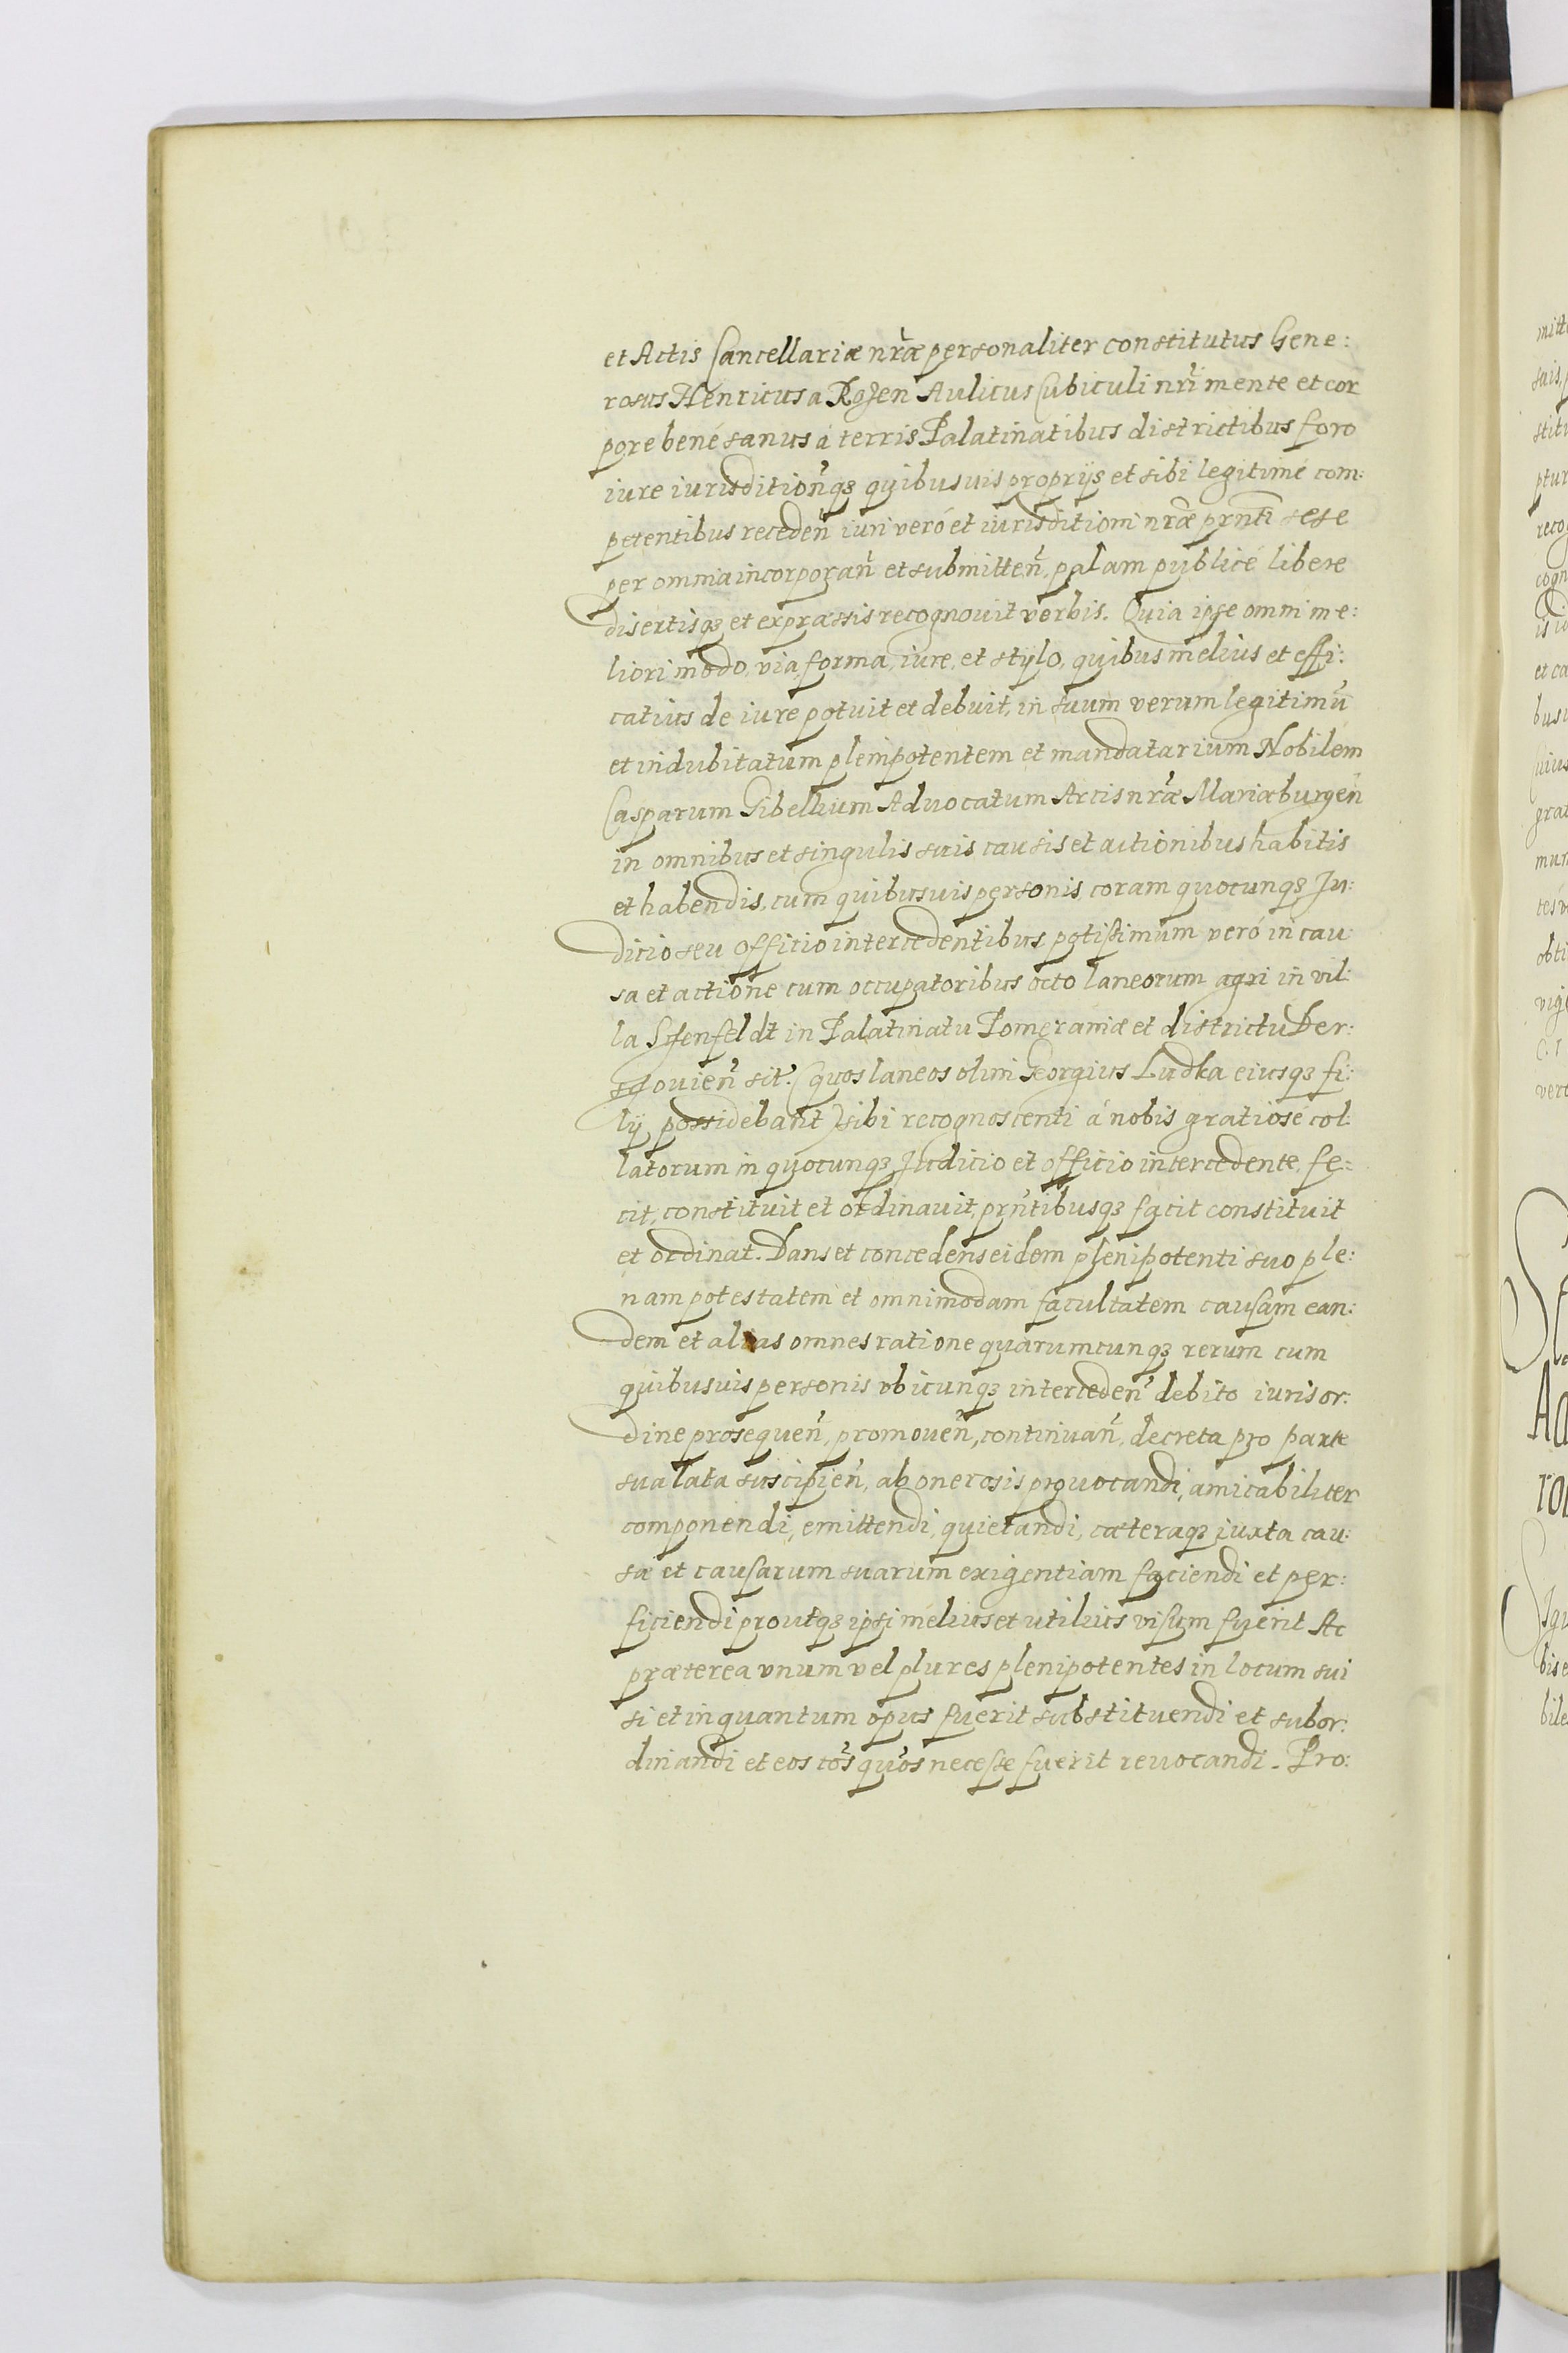 et Actis Cancellariæ nr̃æ personaliter constitutus Gene:
rosus Henricus a Rosen Aulicus Cubiculi nr̃i mente et cor
pore bené sanus á terris Palatinatibus districtibus foro
iure iurisditioñqȝ quibusuis proprijs et sibi legitimé com:
petentibus receden̄ iuri veró et iurisditioni nr̃æ prn̄ti sese
per omnia incorporan̄ et submitten̄, palam publicé libere
disertisqȝ et expræssis recognouit verbis. Quia ipse omni me:
liori modo, via, forma, iure, et stylo, quibus melius et effi:
catius de iure potuit et debuit, in suum verum legitimū
et indubitatum plenipotentem et mandatarium Nobilem
Casparum Gibellium Aduocatum Arcis nr̃æ Mariæburgen̄
in omnibus et singulis suis causis et actionibus habitis
et habendis, cum quibusuis personis, coram quocunqȝ Ju:
dicio seu officio intercedentibus potissimum veró in cau
sa et actione cum occupatoribus octo laneorum agri in vil:
la in Palatinatu Pomeraniæ et districtu Der:
souien̄ sit. (quos laneos olim Georgius Ludka eiusqȝ fi:
lÿ possidebant) sibi recognoscenti á nobis gratiosé col
latorum in quocunqȝ Judicio et officio intercedente, fe:
cit, constituit et ordinauit, prn̄tibusqȝ facit constituit
et ordinat. Dans et concedens eidem plenipotenti suo ple:
nam potestatem et omnimodam facultatem causam ean:
dem et alias omnes ratione quarumcunqȝ rerum cum
quibusuis personis vbicunqȝ interceden̄ debito iuris or:
dine prosequen̄, promouen̄, continuan̄, decreta pro parte
sua lata suscipien̄, ab onerosis prouocandi, amicabiliter
componendi, emittendi, quietandi, cæteraqȝ iuxta cau:
sæ et causarum suarum exigentiam faciendi et per:
ficiendi proutqȝ ipsi melius et utilius visum fuerit Ac
præterea vnum vel plures plenipotentes in locum sui
si et in quantum opus fuerit substituendi et subor:
dinandi et eos to᷑s quo᷑s necesse fuerit reuocandi. Pro: